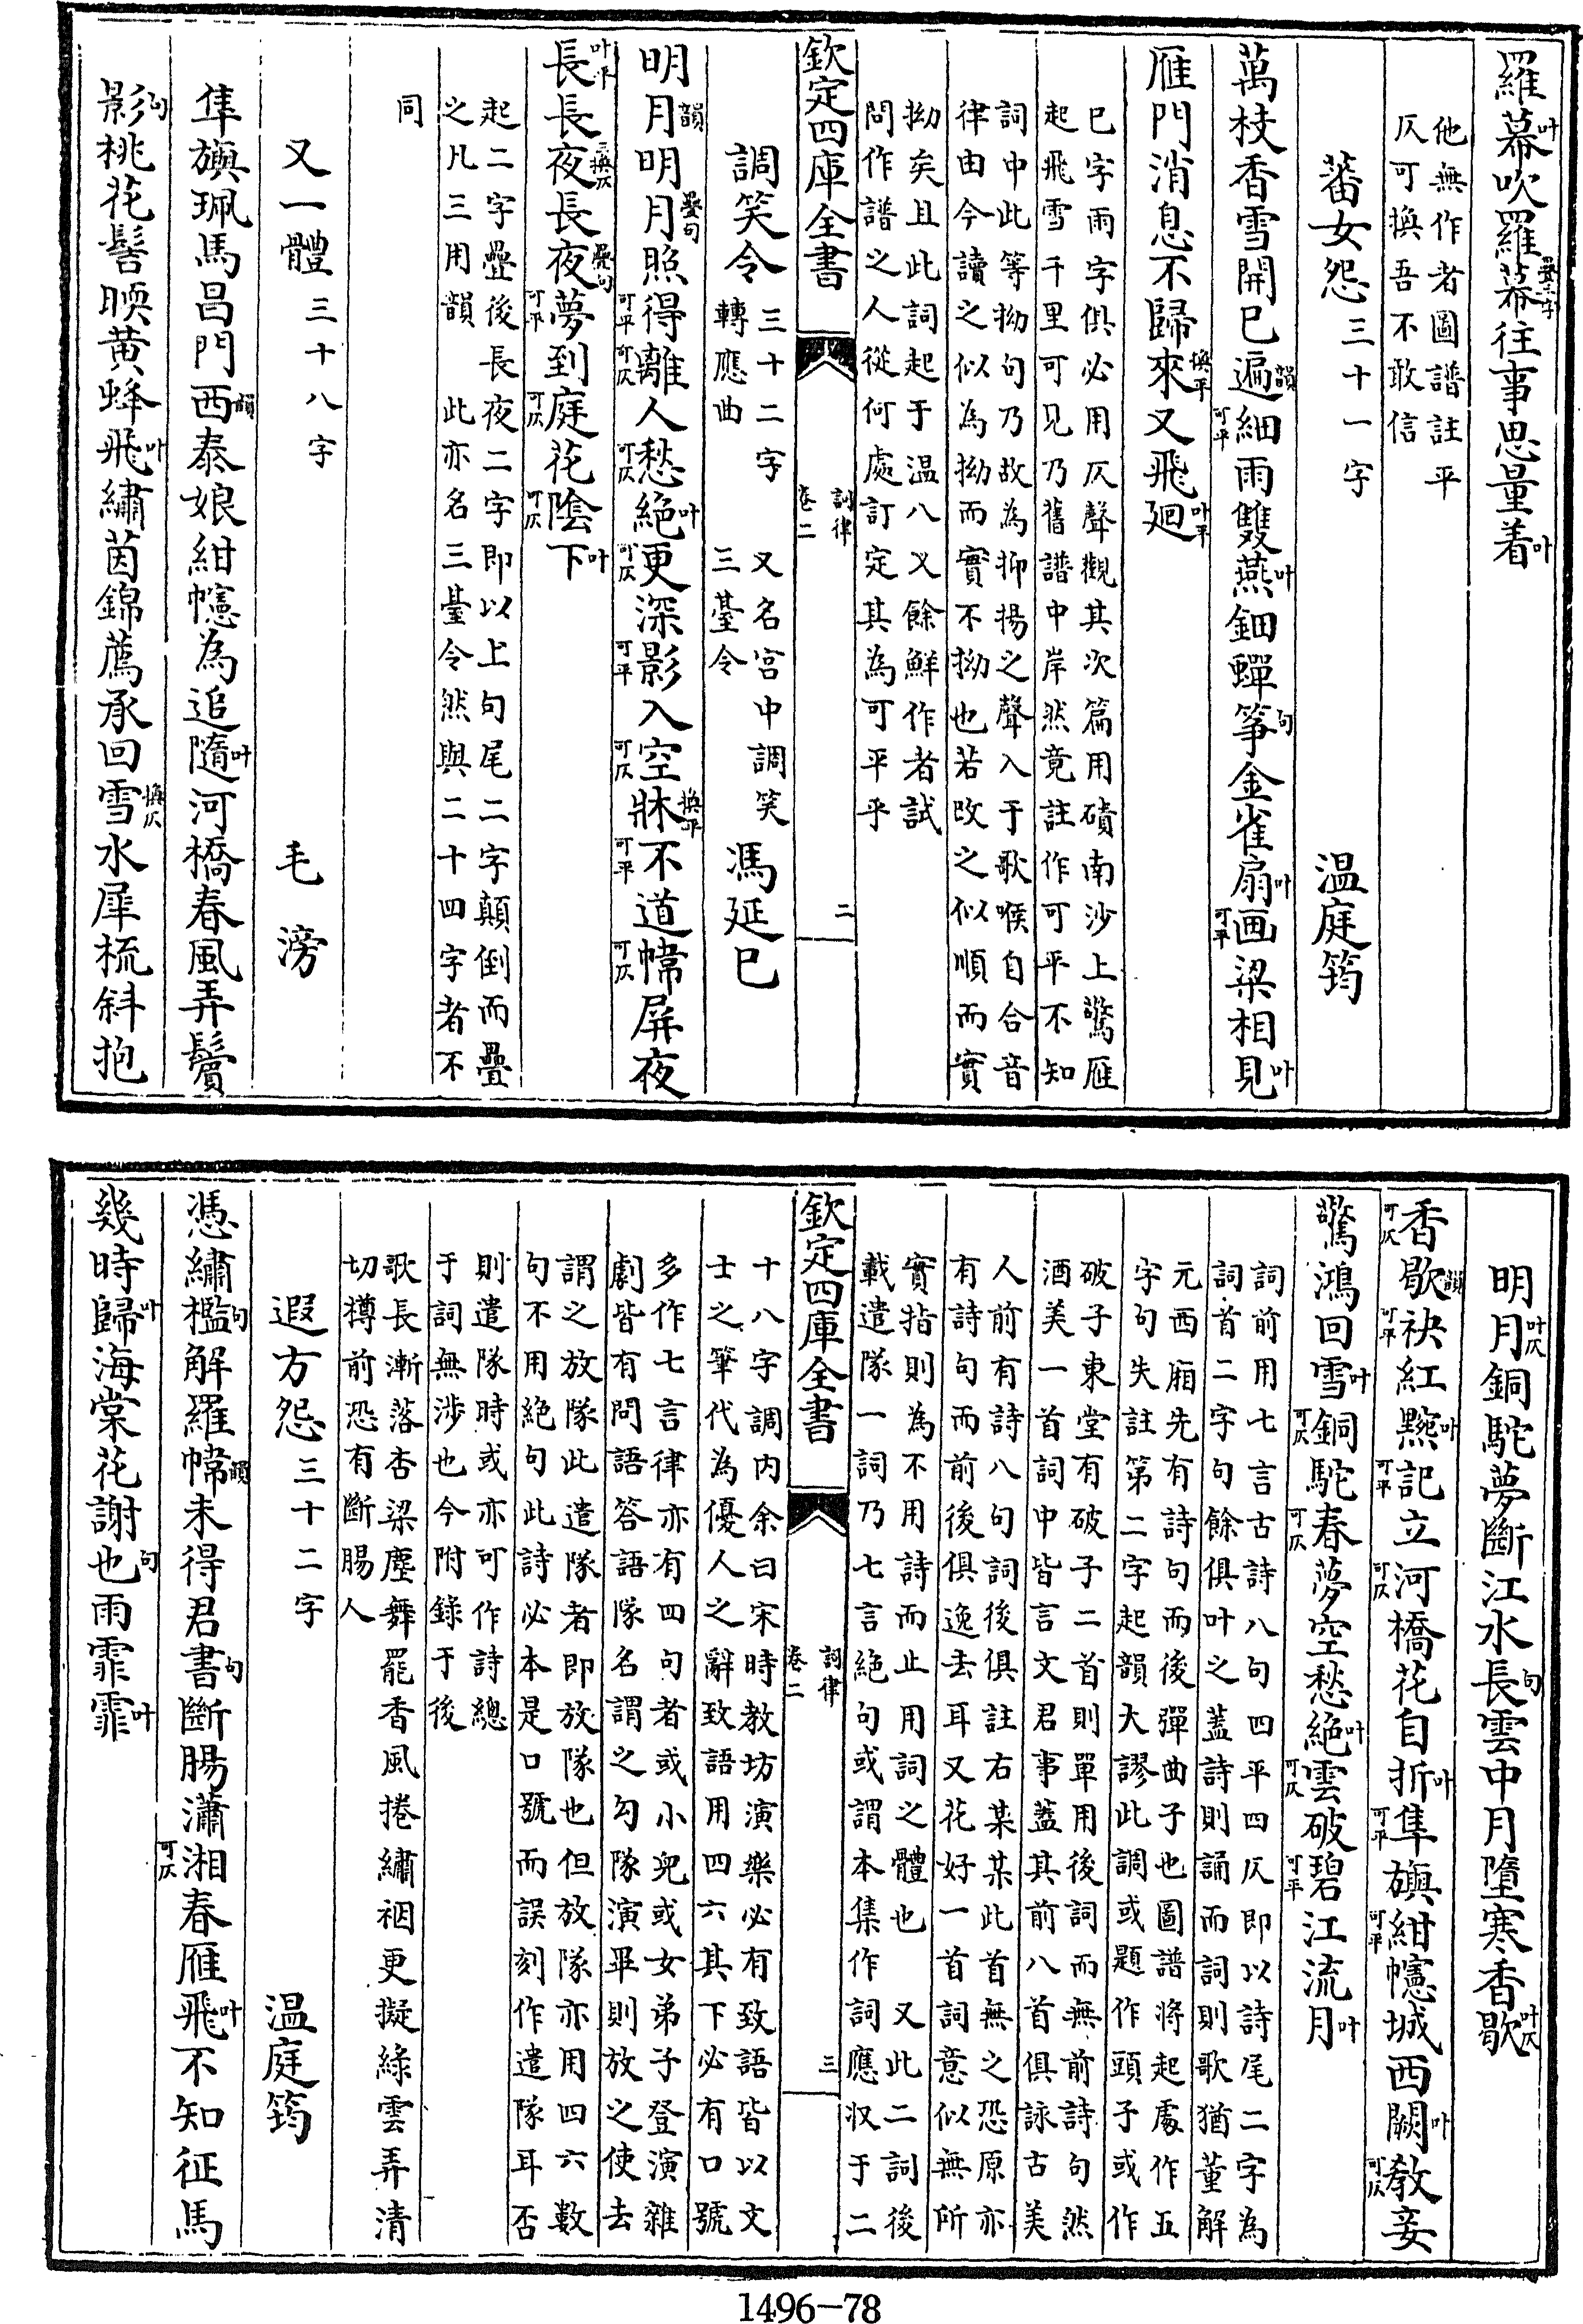 羅幕叶吹羅幕疊三字往事思量着叶
他無作者圖譜註平
仄可換吾不敢信
蕃女怨三十一字 温庭筠
萬枝香雪開已遍韻細可平雨雙燕叶鈿蟬箏句金雀扇叶画可平梁相見叶
雁門消息不歸來換平又飛廻叶平
已字雨字俱必用仄聲觀其次篇用磧南沙上驚雁
起飛雪千里可見乃舊譜中岸然竟註作可平不知
詞中此等拗句乃故為抑揚之聲入于歌喉自合音
律由今讀之似為拗而實不拗也若改之似順而實
拗矣且此詞起于温八叉餘鮮作者試
問作譜之人從何處訂定其為可平乎
欽定四庫全書 詞律 卷二 二
調笑令 三十二字 又名宫中調笑 馮延巳
轉應曲 三臺令
明月韻明月疊句照得可平離可仄人愁可仄絶叶更可仄深影可平入空可仄牀換平不可平道幃可仄屏夜
長叶平長夜三換仄長夜疊句夢可平到庭可仄花陰可仄下叶
起二字疊後長夜二字即以上句尾二字顛倒而疊
之凡三用韻 此亦名三臺令然與二十四字者不
同
又一體三十八字 毛滂
隼旟珮馬昌門西韻泰娘紺幰為追隨叶河橋春風弄鬢
影句桃花髻暎黄蜂飛叶繡茵錦薦承回雪換仄水犀梳斜抱
明月叶仄銅駝夢斷江水長句雲中月墮寒香歇叶仄
香可仄歇韻袂可平紅黦叶記可平立河可仄橋花自折叶隼可平旟紺可平幰城西闕叶教可仄妾
驚鴻回雪叶銅可仄駝春可仄夢空愁絶叶雲可仄破碧可平江流月叶
詞前用七言古詩八句四平四仄即以詩尾二字為
詞首二字句餘俱叶之蓋詩則誦而詞則歌猶董解
元西厢先有詩句而後彈曲子也圖譜將起處作五
字句失註第二字起韻大謬此調或題作頭子或作
破子東堂有破子二首則單用後詞而無前詩句然
酒美一首詞中皆言文君事蓋其前八首俱詠古美
人前有詩八句詞後俱註右某某此首無之恐原亦
有詩句而前後俱逸去耳又花好一首詞意似無所
實指則為不用詩而止用詞之體也 又此二詞後
載遣隊一詞乃七言絶句或謂本集作詞應收于二
欽定四庫全書 詞律 卷二 三
十八字調内余曰宋時教坊演樂必有致語皆以文
士之筆代為優人之辭致語用四六其下必有口號
多作七言律亦有四句者或小兒或女弟子登演雜
劇皆有問語答語隊名謂之勾隊演畢則放之使去
謂之放隊此遣隊者即放隊也但放隊亦用四六數
句不用絶句此詩必本是口號而誤刻作遣隊耳否
則遣隊時或亦可作詩總
于詞無渉也今附錄于後
歌長漸落杏梁塵舞罷香風捲繡裀更擬綠雲弄清
切樽前恐有斷腸人
遐方怨三十二字 温庭筠
憑繡檻句解羅幃韻未得君書句斷腸瀟可仄湘春雁飛叶不知征馬
幾時歸叶海棠花謝也句雨霏霏叶
1496-78